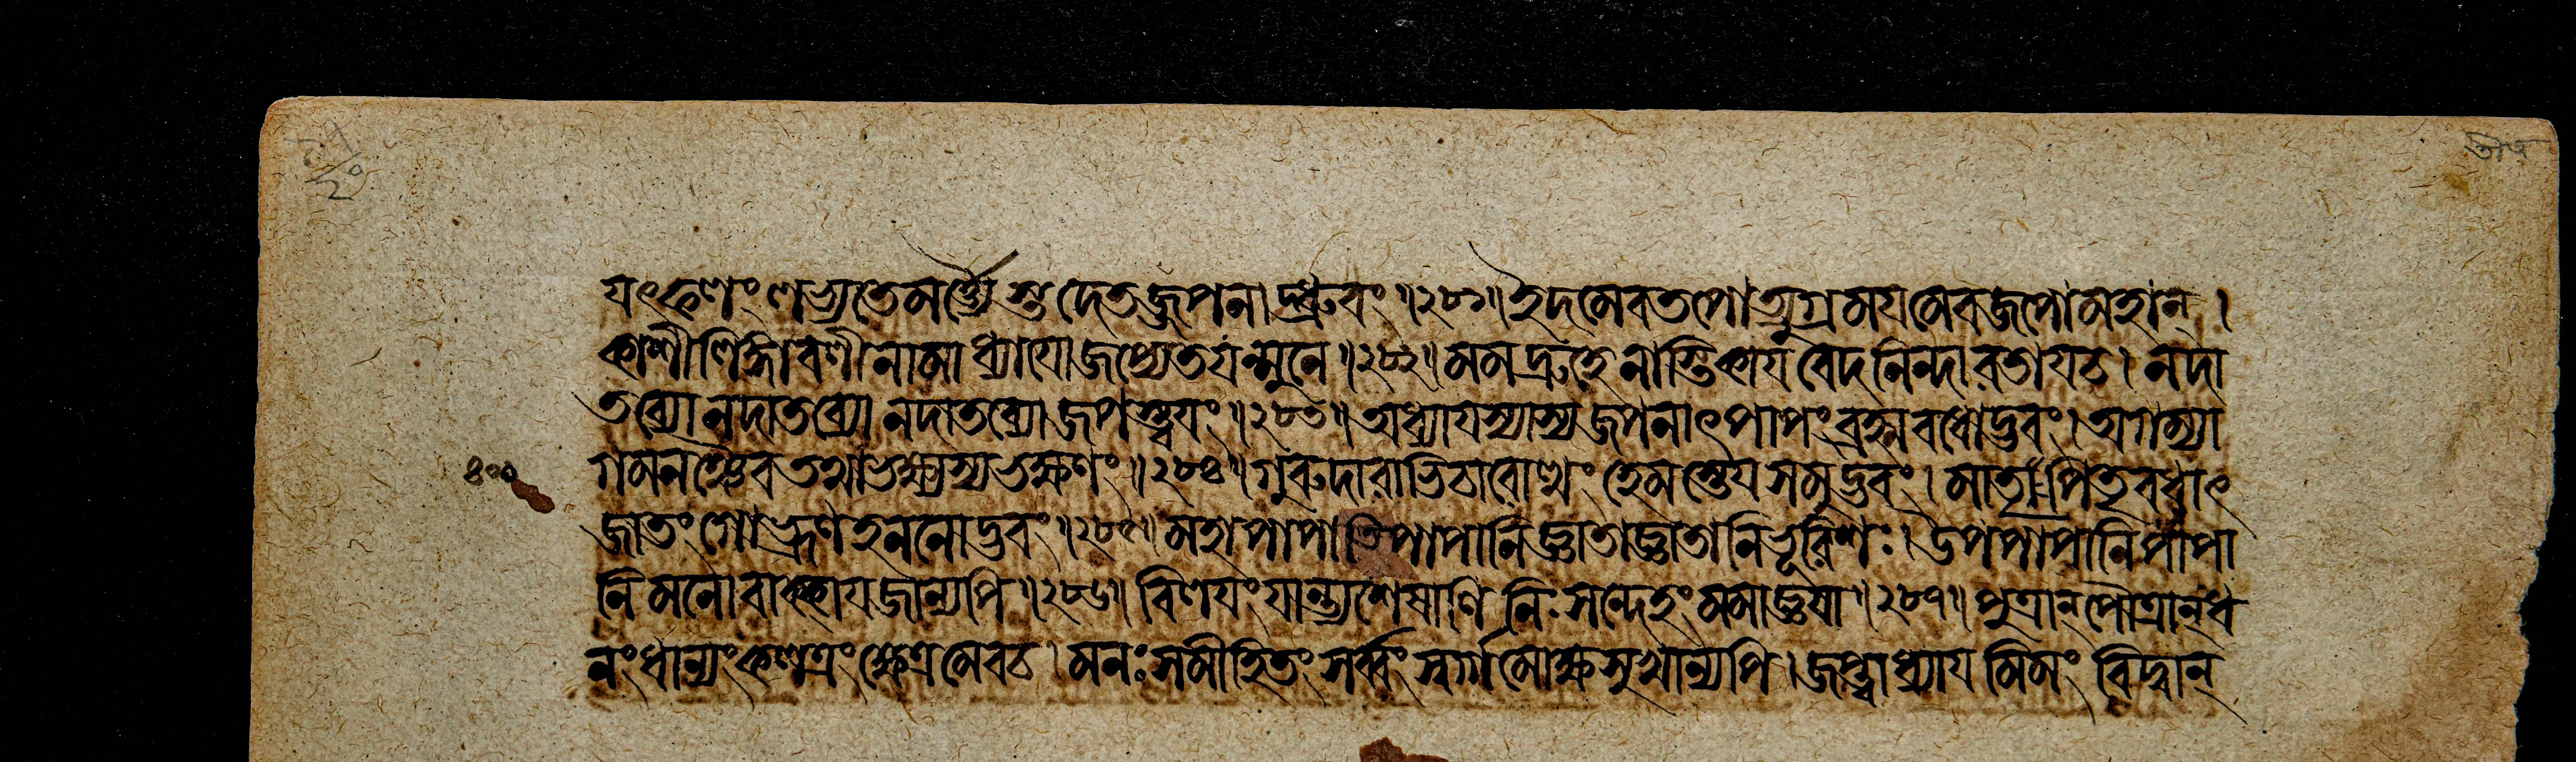 यৎফলং লভ্যতে মর্ত্ত্যৈস্তদেতজ্জপনাদ্ধ্রুবং॥২৮১॥ ইদমেব তপোত্যুগ্রময়মেব জপো মহান্।
কাশীলিঙ্গাবলীনামাধ্যায়ো জপ্যেত যন্মুনে॥২৮২॥ মম দ্রুহে নাস্তিকায় বেদনিন্দারতায় চ। ন দা
তব্যো ন দাতব্যো ন দাতব্যো জপস্ত্বয়ং॥২৮৩॥ অধ্যায়স্যাস্য জপনাৎ পাপং ব্রহ্মবধোদ্ভবং। অগম্যা
গমনঞ্চৈব তথাভক্ষ্যস্য ভক্ষণং॥২৮৪॥ গুরুদারাভিচারোত্থং হেমস্তেয়সমুদ্ভবং। মাতৃপিতৃবধাৎ
জাতং গোভ্রূণহননোদ্ভবং॥২৮৫॥ মহাপাপাতিপাপানি জ্ঞাতাজ্ঞাতানি ভূরিশঃ। উপপাপানি পাপা
নি মনোবাক্কায়জান্যপি॥২৮৬॥ বিলয়ং যান্ত্যশেষাণি নিঃসন্দেহং মমাজ্ঞয়া॥২৮৭॥ পুত্রান্ পৌত্রান্ ধ
৪০০
নং ধান্যং কলত্রং ক্ষেত্রমেব চ। মনঃসমীহিতং সর্ব্বং স্বর্গমোক্ষসুখান্যপি। জপ্ত্বাধ্যায়মিমং বিদ্বান্